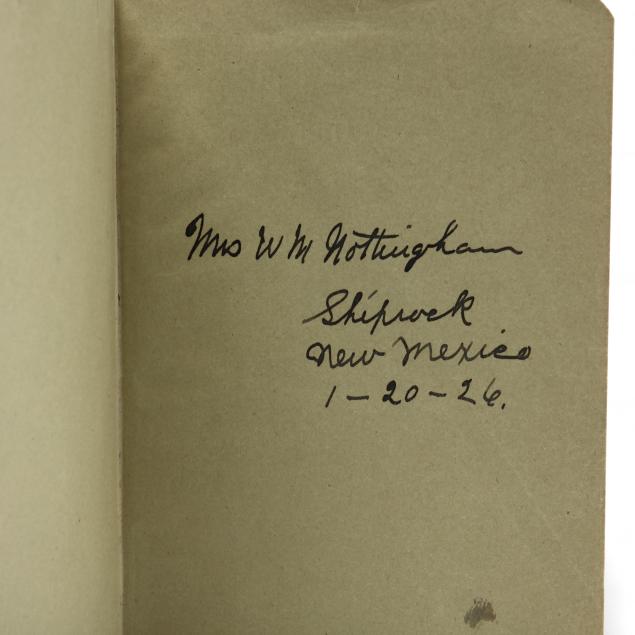 Mrs W M Nottingham
Shiprock
New Mexico
1-20-26.